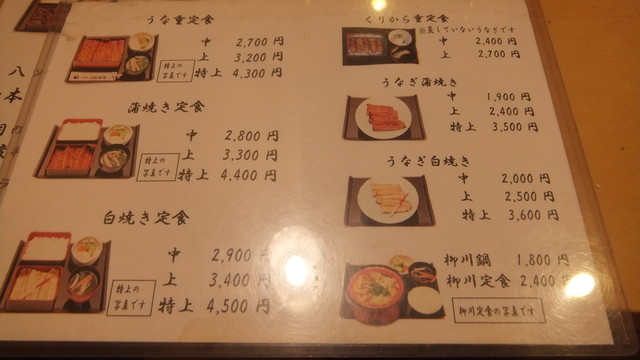 うな重定食
中 2,700 円
上 3,200 円
特上 4,300 円
特上の
写真です
蒲焼き定食
中 2,800 円
上 3,300 円
特上 4,400 円
特上の
写真です
白焼き定食
中 2,900 円
上 3,400 円
特上 4,500 円
特上の
写真です
くりから重定食
※蒸していないうなぎです
中 2,400 円
上 2,700 円
うなぎ蒲焼き
中 1,900 円
上 2,400 円
特上 3,500 円
うなぎ白焼き
中 2,000 円
上 2,500 円
特上 3,600 円
柳川鍋 1,800 円
柳川定食 2,400 円
柳川定食の写真です
八
本